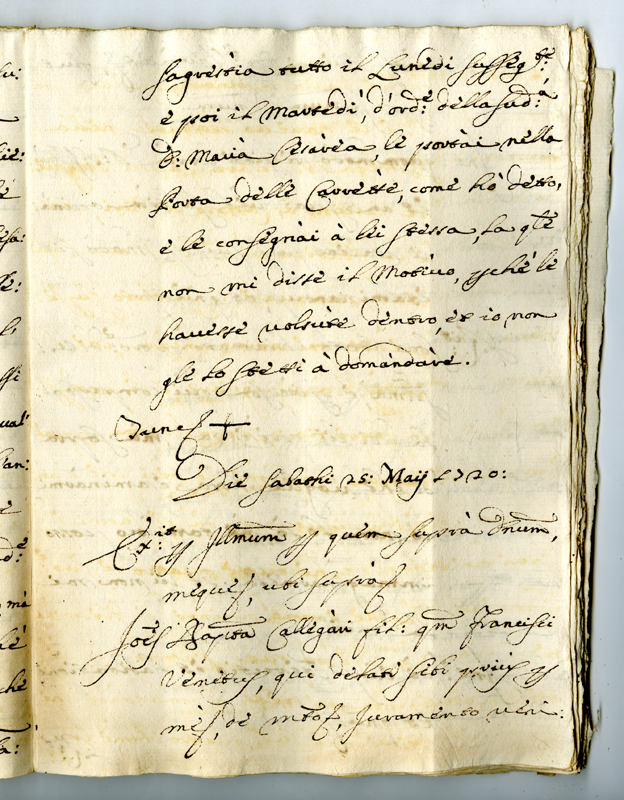 lu:
sagrestia tutto il Lunedi susseg.te:
e poi il Martedi, d'ord.e della sud.a
lie:
D: Maria Cesarea, le portai nella
Porta delle Carrette, come hò detto,
esa:
e le consegnai à lei stessa, la qle
le:
non mi disse il Motivo, pché le
havesse volsute dentro, et io non
ssi
gle lo stetti à domandare.
ual'
Die Sabathi 25: Maij 1720:
Ex.it
p Illmum p quem suprà Dnum,
meque, ubi suprà
mà
Joes Bapta Callegari fil: qm Francisci
Venetus, qui delato sibi prius p
ché
me, de mto, Juramento veri:
la: